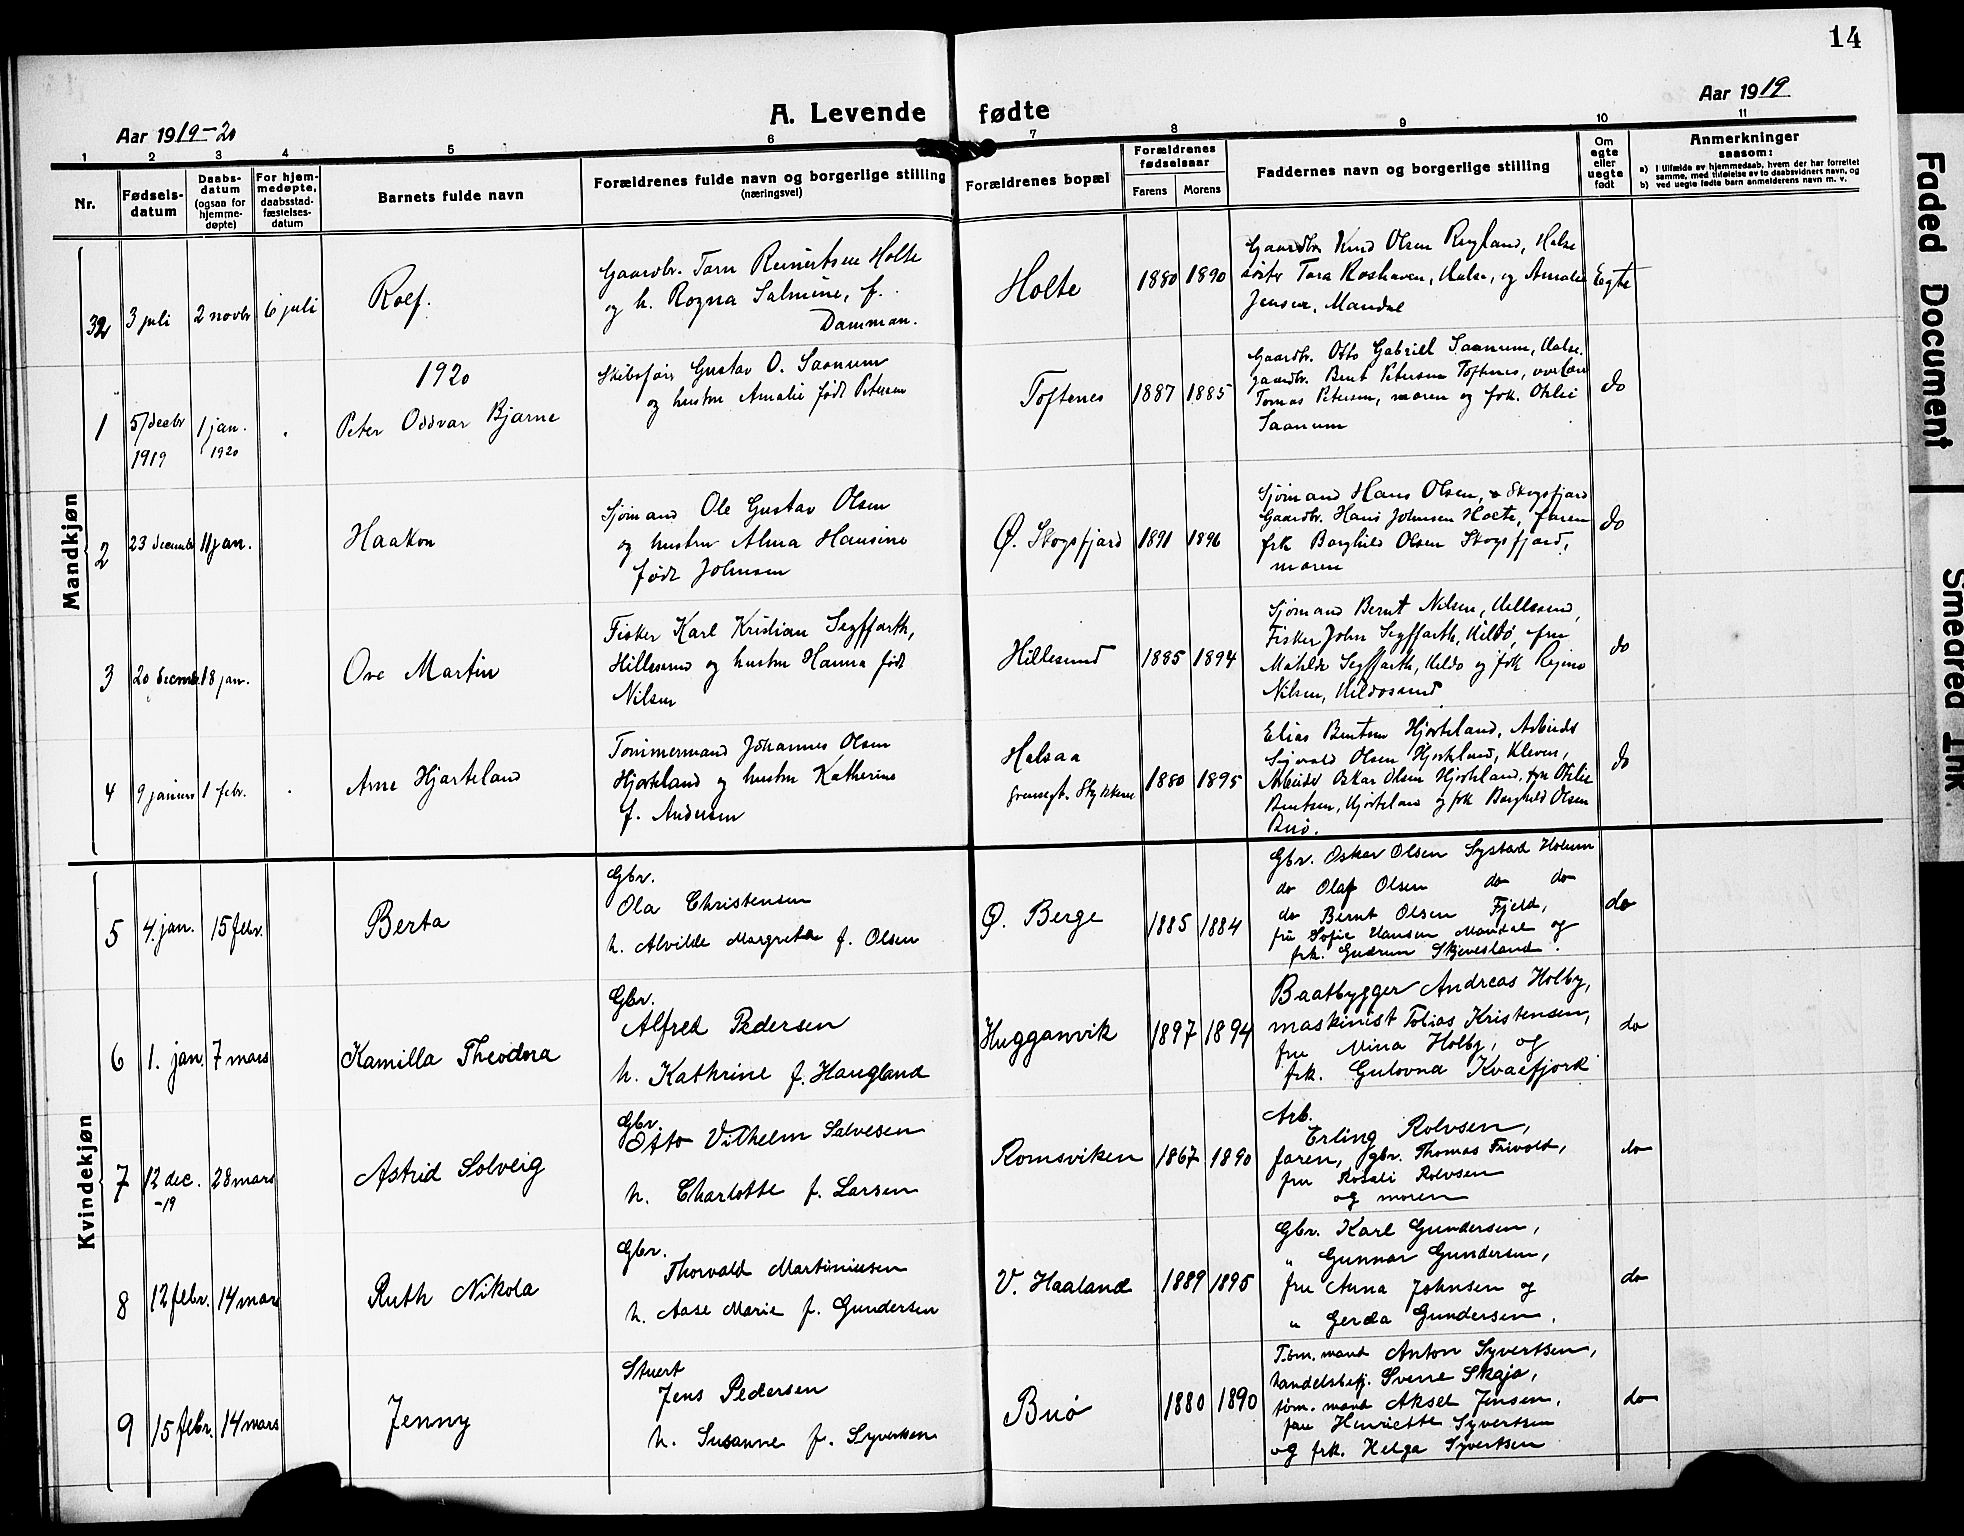 14
A. Levende fødte
Aar 1919-20
Aar 1919
1 2 3 4 5 6 7 8 9 10 11
Nr.
Fødsels-
datum
Daabs-
datum
(ogsaa for
hjemme-
døpte)
For hjem-
medøpte,
daabsstad-
fæstelses-
datum
Barnets fulde navn
Forældrenes fulde navn og borgerlige stilling
(næringsvei)
Forældrenes bopæl
Forældrenes
fødselsaar
Farens Morens
Faddernes navn og borgerlige stilling
Om
egte
eller
uegte
født
Anmerkninger
saasom:
a) i tilfælde av hjemmedaab, hvem der har forrettet
samme, med tilføielse av to daabsvidners navn, og
b) ved uegte fødte barn anmelderens navn m. v.
Mandkjøn
32 3 juli 2 novbr 6 juli
Rolf.
Gaardbr. Tarn Reinertsen Holte
og h. Ragna Salmine, f.
Damman.
Holte 1880 1890
Gaardbr. Knud Olsen Røyland, Halse
Tora Roshaven, Halse, og Amalie
Jensen, Mandal
Egte
1920
1 5/decbr
1919
1 jan.
1920
Peter Oddvar Bjarne
Skibsfører Gustav O. Saanum
og hustru Amalie født Petersen
Toftenes 1887 1885
Gaardbr. Otto Gabriel Saanum, Halse.
gaardbr. Bent Petersen Toftenes,
Tomas Petersen, moren og frk. Otilie
Saanum
do
2 23 decembr 11 jan.
Haakon
Sjømand Ole Gustav Olsen
og hustru Alma Hansine
født Johnsen
Ø. Skogsfjord 1891 1896
Sjømand Hans Olsen, Ø Skogsfjord
Gaardbr. Hans Johnsen Holte, faren
frk Borghild Olsen Skogsfjord,
moren
do
3 20 decmbr 18 jan.
Ove Martin
Fisker Karl Kristian Seyffarth,
Hillesund og hustru Hanna født
Nilsen
Hillesund 1885 1894
Sjømand Bernt Nilsen, Hillesund,
Fisker John Seyffarth, Hildø, fru
Mathilde Seyffarth, Hildo og frk Regine
Nilsen, Hildosund
do
4 9 januar 1 febr.
Arne Hjorteland
Tømmermand Johannes Olsen
Hjorteland og hustru Katherine
f. Andersen
Halsaa
grensegt. Stykkene
1880 1895
Elias Bentsen Hjorteland, Arbeids
Sigvald Olsen Hjorteland, Kleven,
Arbeider Oskar Olsen Hjorteland, fru Otilie
Bentsen, Hjorteland og frk Borghild Olsen
Buø.
do
Kvindekjøn
5 4. jan. 15 febr.
Berta
Gbr.
Ola Christensen
h. Alvilde Margrete f. Olsen
Ø. Berge 1885 1884
Gbr. Oskar Olsen Systad Holum
do Olaf Olsen do do
do Bernt Olsen Fjeld,
fru Sofie Hansen Mandal og
frk. Gudrun Skjevesland.
do
6 1. jan. 7 mars
Kamilla Theodora
Gbr.
Alfred Pedersen
h. Kathrine f. Haugland
Hugganvik 1897 1894
Baatbygger Andreas Holby,
maskinist Tobias Kristensen,
fru Mina Holby, og
frk. Gulovna Kvaefjork
do
7 12 dec.
-19
28 mars
Astrid Solveig
Gbr.
Otto Vilhelm Salvesen
h. Charlotte f. Larsen
Romsviken 1867 1890
Arb.
Erling Rolvsen,
faren, gbr. Thomas Frivold,
fru Rosali Rolvsen
og moren
do
8 12 febr. 14 mars
Ruth Nikola
Gbr.
Thorvald Martiniusen
h. Aase Marie f. Gundersen
V. Haaland 1889 1895
Gbr. Karl Gundersen,
" Gunnar Gundersen,
fru Anna Johnsen og
" Gerda Gundersen.
do
9 15 febr. 14 mars
Jenny
Stuert
Jens Pedersen
h. Susanne f. Syvertsen
Buø 1880 1890
Tøm. mand Anton Syvertsen,
handelsbetj. Sverre Skajo,
tøm. mand Aksel Jensen,
fru Henriette Syvertsen
og frk. Helga Syvertsen
do
Faded Document
Smeared Ink